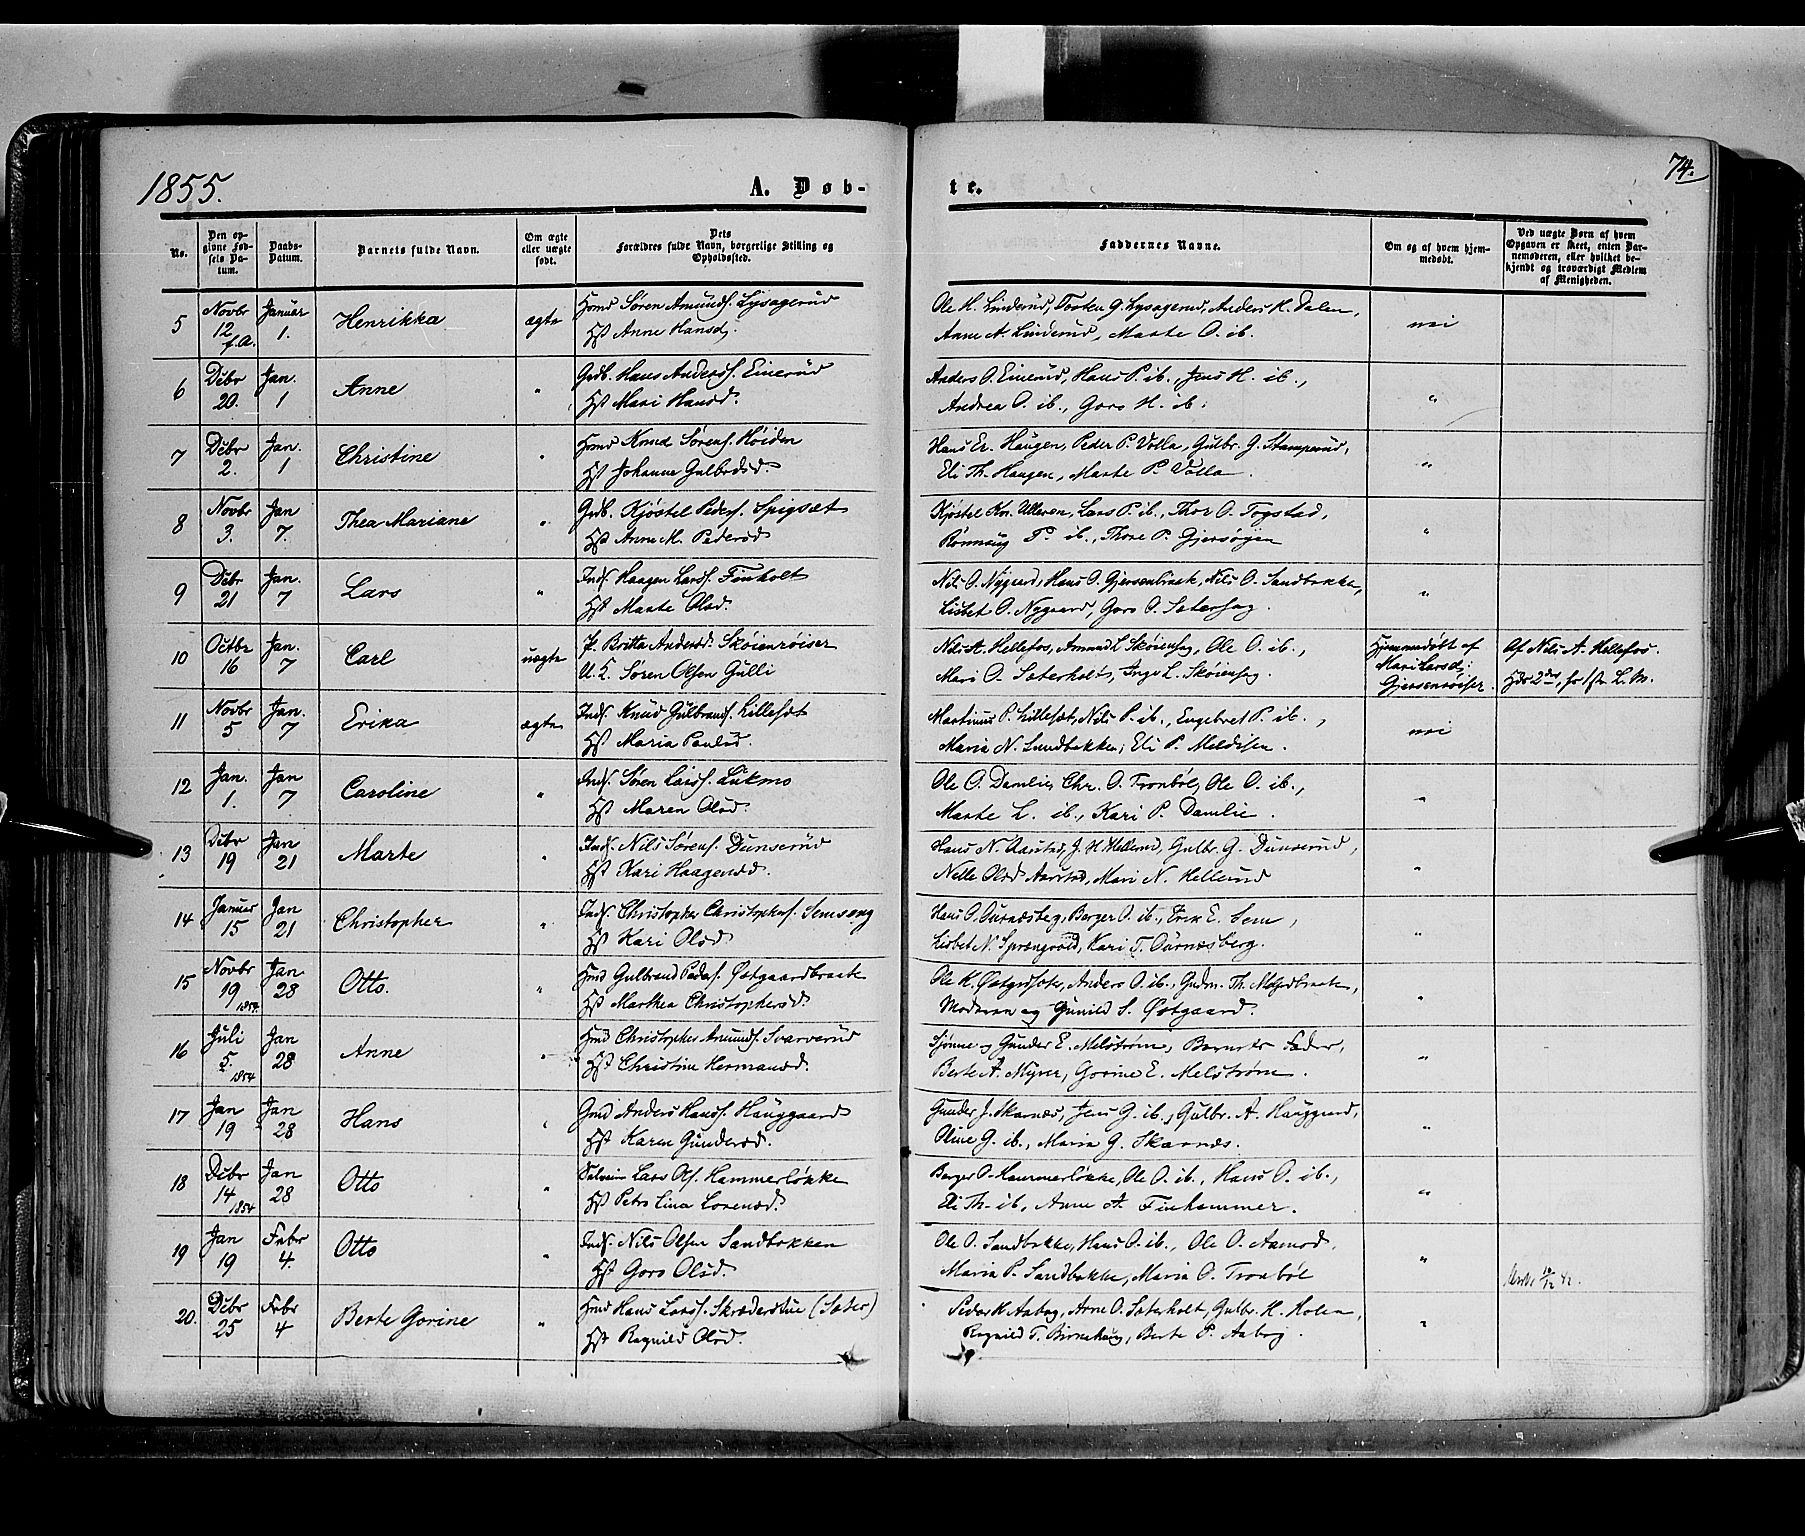 1855.
A. Døb-
te.
74.
No.
Den opgivne Fødsels Datum.
Daabs-Datum.
Barnets fulde Navn.
Om ægte eller uægte født.
Dets Forældres fulde Navn, borgerlige Stilling og Opholdssted.
Faddernes Navne.
Om og af hvem hjemmedøbt.
Ved uægte Børn af hvem Opgaven er skeet, enten Barnemoderen, eller hvilket bekjendt og troværdigt Medlem af Menigheden.
5 Novbr 12 f.A. Januar 1. Henrikka ægte
Hmd Søren Amunds. Lysagerud
Hst Anne Hansd.
Ole H. Linderud, Torsten G. Lysagerud, Anders K. Dalen,
Anne A. Linderud, Marte O. ib.
nei
6 Debr 20. Jan. 1 Anne "
Grdb. Hans Anders. Einerud
Hst Mari Hansd.
Anders O. Einerud, Hans P. ib., Jens H. ib.,
Andrea O. ib., Goro H. ib.
"
7 Debr 2. Jan. 1 Christine "
Hmd Knud Sørens. Høiden
Hst Johanne Gulbrdsd.
Hans Er. Haugen, Peder P. Volla, Gulbr. G. Stamperud,
Eli Th. Haugen, Marte P. Volla.
"
8 Novbr 3. Jan 7. Thea Mariane "
Grdb. Kjøstel Peders. Spigsæt
Hst Anne M. Pedersd
Kjøstel Kn. Ulleren, Lars P. ib., Thor O. Togstad,
Rønnaug P. ib., Thore P. Gjersøyen
"
9 Debr 21 Jan. 7 Lars "
Inds. Haagen Larss. Finholt
Hst Marte Olsd.
Nils O. Nygaard, Hans O. Gjersenbraat, Nils O. Sandbakke,
Lisbet O. Nygaard, Goro O. Sæterhag.
"
10 Octbr 16 Jan. 7 Carl uægte
P. Britta Andersd. Skøienrøiser
U. K. Søren Olsen Gulli
Nils A. Hellefos, Amund L. Skøienhag, Ole O. ib.,
Mari O. Sæterholt, Inge L. Skøienhag.
Hjemmedøbt af
Mari Larsd.
Gjersenrøiser.
Af Nils A. Hellefos.
11 Novbr 5 Jan. 7 Erika ægte
Inds. Knud Gulbrands. Lillesæt
Hst Maria Paulsd.
Martinus P. Lillesæt, Nils P. ib., Engebret P. ib.,
Maria N. Sundbakken, Eli P. Meldisen.
nei
12 Jan. 1. Jan 7 Caroline "
Inds. Søren Larss. Lukmo
Hst Maren Olsd.
Ole O. Damlie, Chr. O. Tronbøl, Ole O. ib.,
Marte L. ib., Kari P. Damlie.
"
13 Debr 19 Jan 21 Marte "
Inds. Nils Sørens. Dunserud
Hst Kari Haagensd.
Hans N. Aarstad, J. H. Hellerud, Gulbr. G. Dunserud,
Nelle Olsd Aarstad, Mari N. Hellerud
"
14 Januar 15 Jan 21 Christopher "
Inds. Christopher Christophers. Semseng
Hst Kari Olsd
Hans O. Ournæsberg, Berger O. ib., Erik E. Sem,
Lisbet N. Sprangvold, Kari T. Ournæsberg.
"
15 Novbr 19 1854. Jan 28 Otto. "
Hmd Gulbrand Peders. Østgaardbraate
Hst Marthea Christophersd.
Ole K. Østgrdsæte, Anders O. ib., Gudm. Th. Melgrdbraate,
Moderen og Gunild S. Østgaard.
"
16 Juli 5. 1854 Jan 28 Anne "
Hmd Christopher Amunds. Svarverud
Hst Christine Hermansd.
Sjønne og Gunder E. Melstrøm, Barnets Fader,
Berte A. Myrer, Gorine E. Melstrøm.
"
17 Jan 19 Jan 28 Hans "
Gmd Anders Hanss. Hauggaard
Hst Karen Gundersd.
Gunder J. Skarnæs, Jens G. ib., Gulbr. A. Hauggaard,
Oline G. ib., Maria G. Skarnæs.
"
18 Debr 14 1854 Jan 28 Otto "
Selveier Lars Ols. Hammerløkke
Hst Petrs Lina Lorensd.
Berger O. Hammerløkke, Ole O. ib., Hans O. ib.,
Eli Th. ib., Anne A. Finhammer.
"
19 Jan 19 Febr 4. Otto "
Inds. Nils Olsen Sandbakken
Hst Goro Olsd.
Ole O. Sandbakke, Hans O. ib., Ole O. Aamod,
Maria P. Sandbakke, Maria O. Tronbøl
"
20. Debr 25 Febr 4 Berte Gorine "
Hmd Hans Larss. Skræderstue (Sæter)
Hst Ragnild Olsd.
Peder K. Aabog, Arne O. Sæterholt, Gulbr. H. Holen,
Ragnild T. Birnehaug, Berte P. Aabog.
"